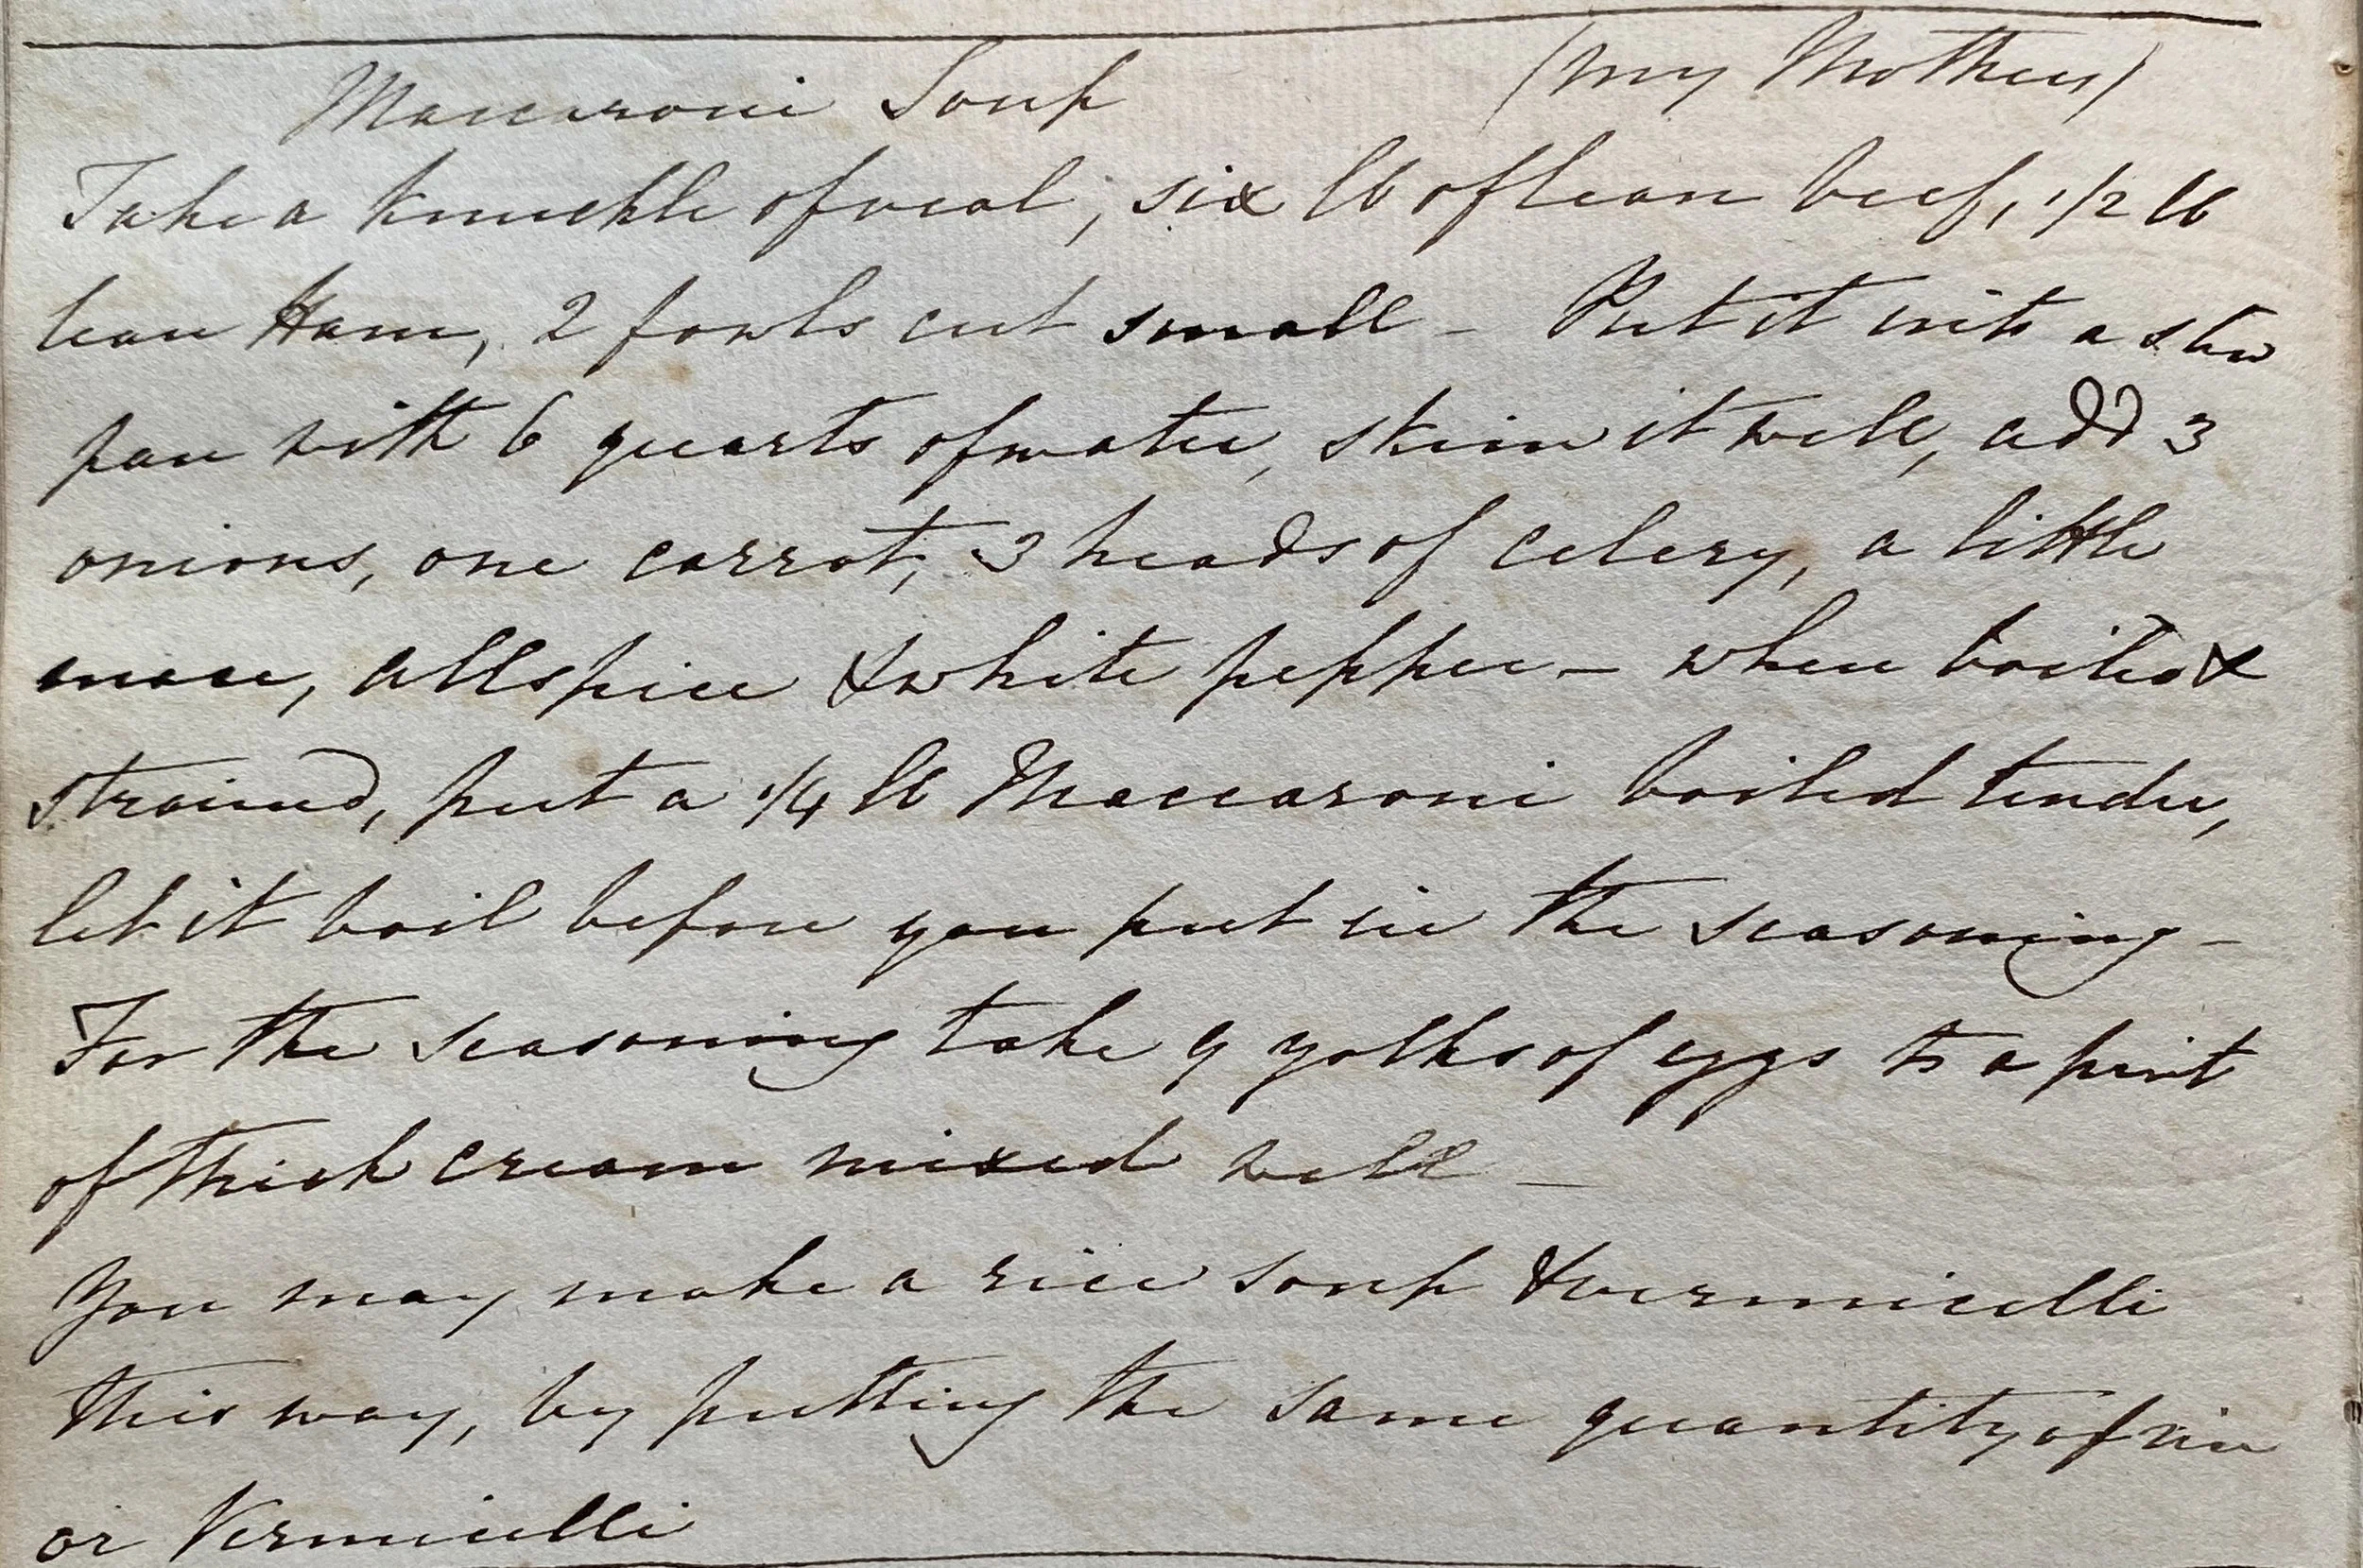 Maccaroni Soup (My Mothers)
Take a knuckle of veal, six lb of lean beef, 1/2 lb
lean Ham, 2 fowls cut small - Put it into a stew
pan with 6 quarts of water, skim it well, add 3
onions, one carrot, 3 heads of celery, a little
mace, allspice & white pepper - when boiled &
strained, put a 1/4 lb Maccaroni boiled tender,
let it boil before you put in the seasoning -
For the seasoning take 9 yolks of eggs to a pint
of thick cream mixed well -
You may make a rice soup & vermicelli
this way, by putting the same quantity of rice
or Vermicelli